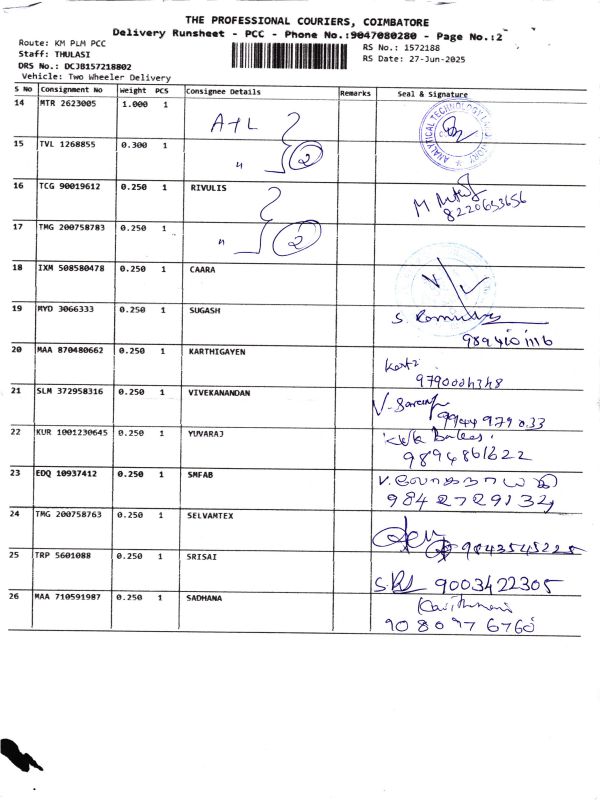 THE PROFESSIONAL COURIERS, COIMBATORE
Delivery Runsheet - PCC - Phone No.:9047080280 - Page No.:2
Route: KM PLM PCC
RS No.: 1572188
Staff: THULASI
RS Date: 27-Jun-2025
DRS No.: DCJB157218802
Vehicle: Two Wheeler Delivery
S No Consignment No Weight PCS Consignee Details Remarks Seal & Signature
14 MTR 2623005 1.000 1 A+L
ANALYTICAL TECHNOLOGY
15 TVL 1268855 0.300 1 " 2
16 TCG 90019612 0.250 1 RIVULIS M
8220653656
17 TMG 200758783 0.250 1 " 2
18 IXM 508580478 0.250 1 CAARA
19 MYD 3066333 0.250 1 SUGASH S.
9894101116
20 MAA 870480662 0.250 1 KARTHIGAYEN
9790004348
21 SLM 372958316 0.250 1 VIVEKANANDAN V.
9944979033
22 KUR 1001230645 0.250 1 YUVARAJ
9894861622
23 EDQ 10937412 0.250 1 SMFAB V. லோகநாயகி
9842729132
24 TMG 200758763 0.250 1 SELVAMTEX
9843545225
25 TRP 5601088 0.250 1 SRISAI 9003422305
26 MAA 710591987 0.250 1 SADHANA
9080976760